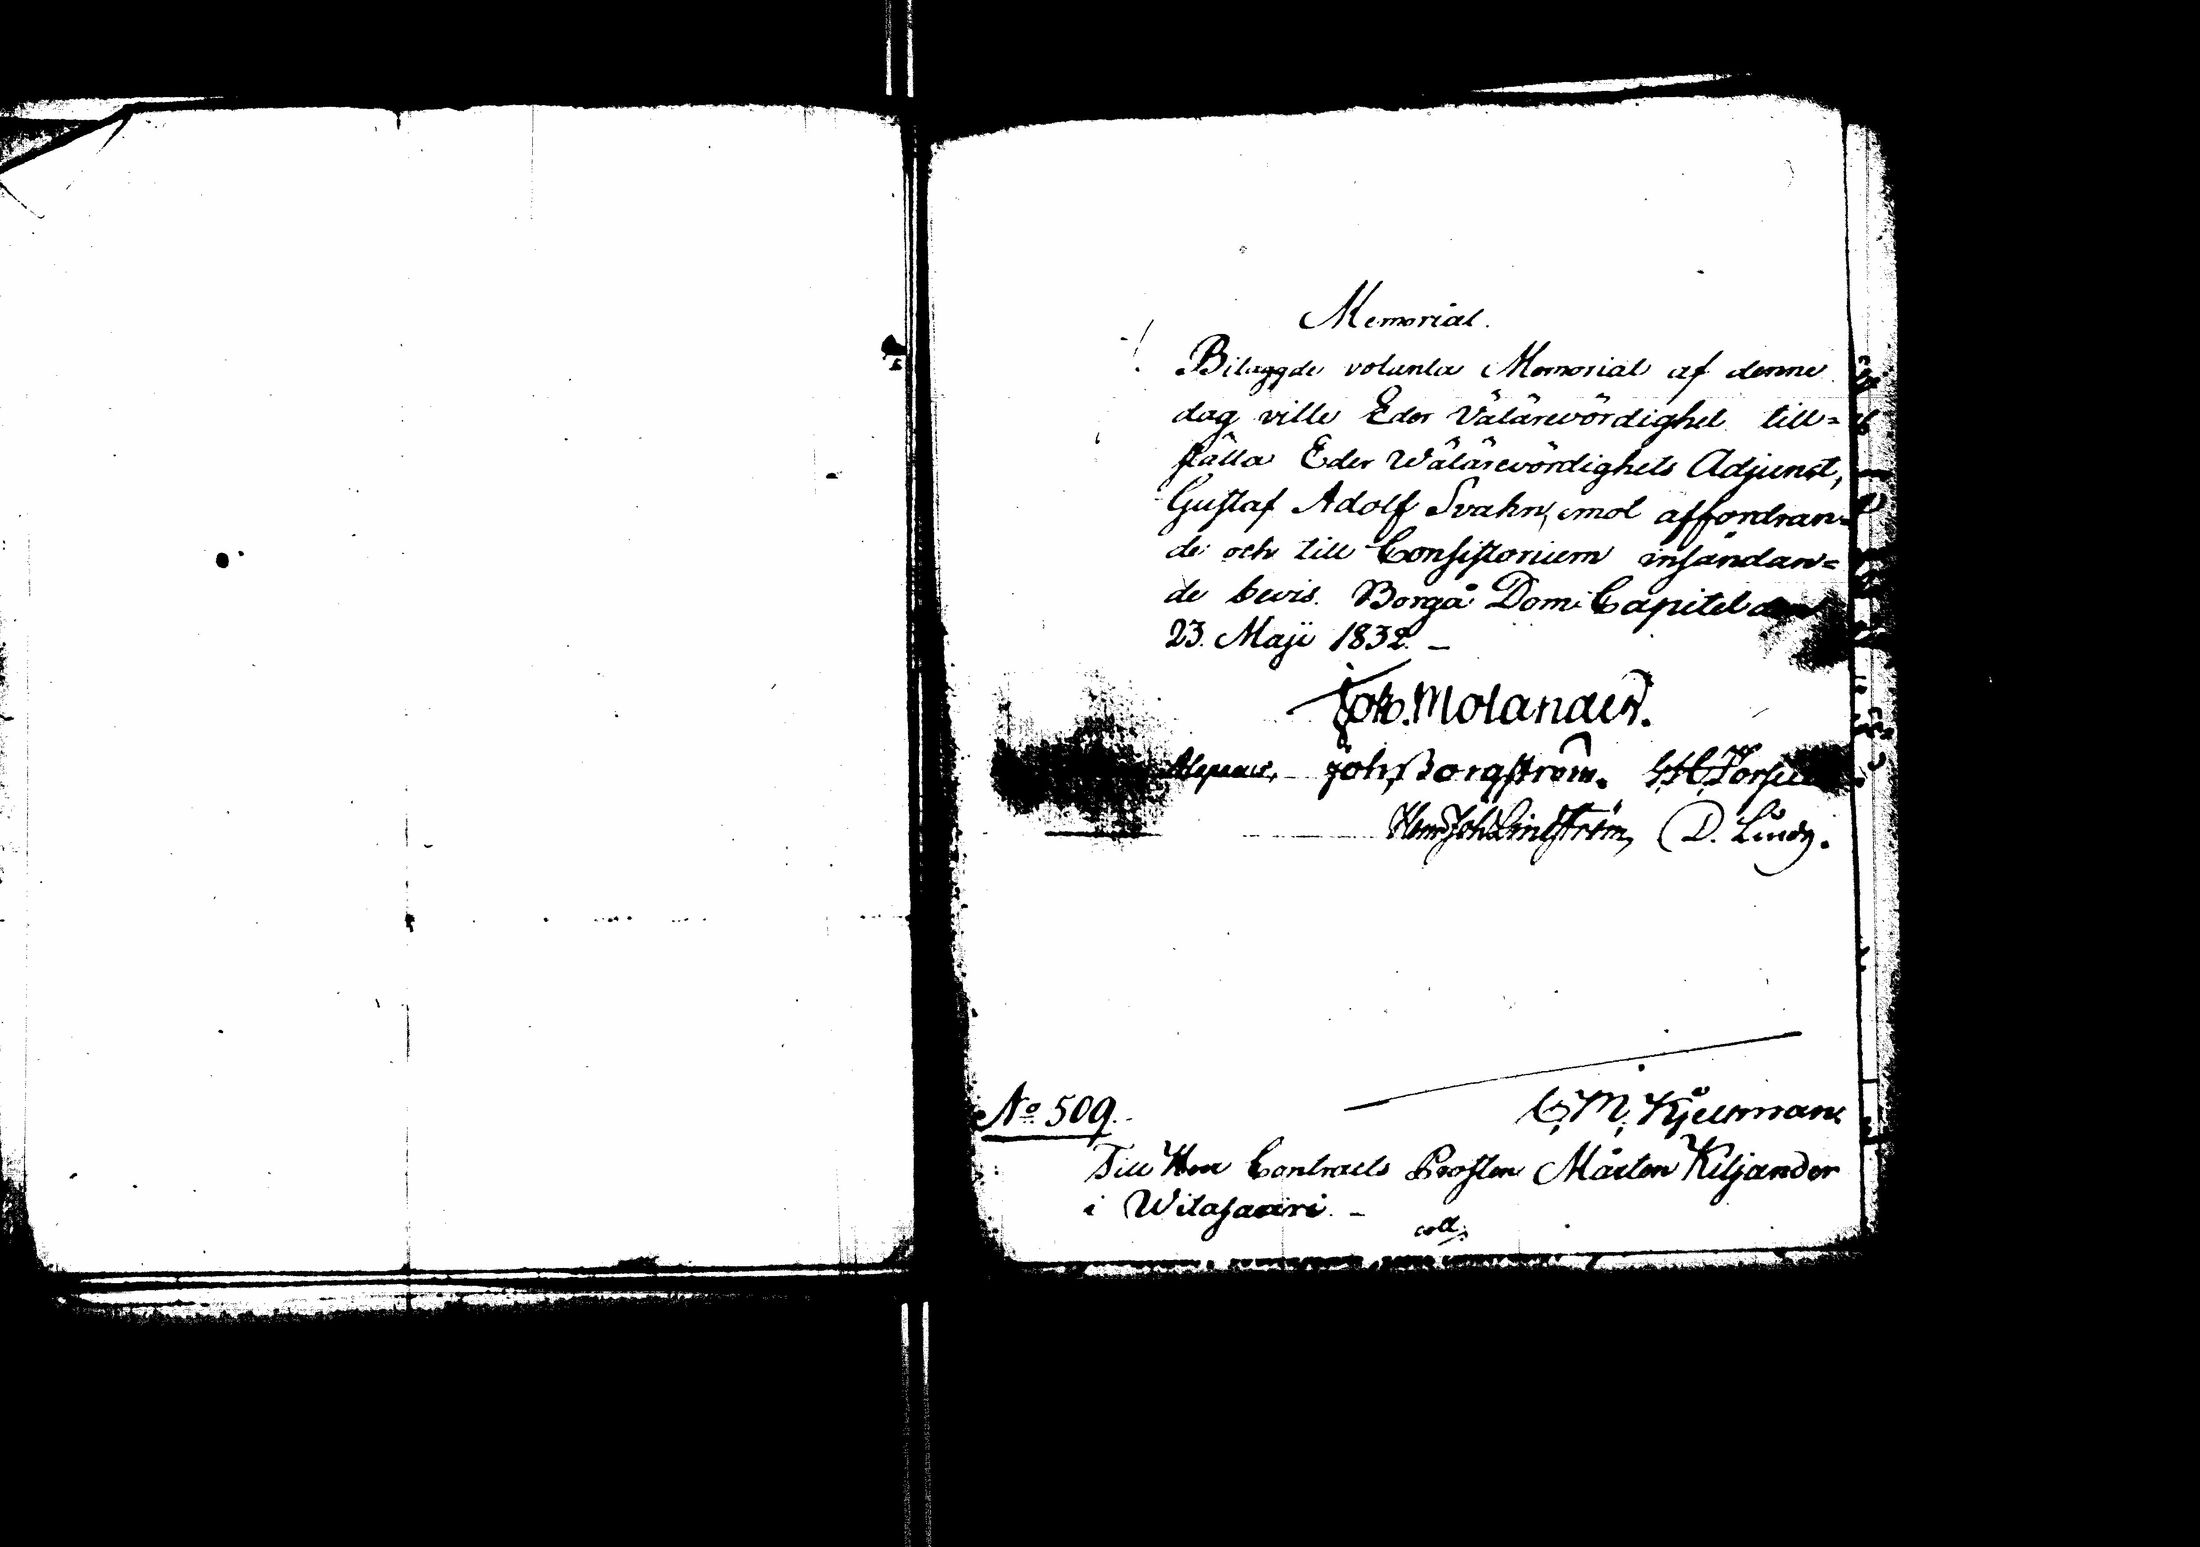 Memorial.
Bilaggde volanta Memorial af denne
dag ville Eder Välärevördighet till=
ställa Eder Wälärevördighets Adjunct,
Gustaf Adolf Svahn, emot affordran=
de och till Consistorium insändan=
de bevis. Borgå Dom-Capitel den
23. Maji 1832. –
Joh. Molander.
Joh. Borgström.
Joh. Lindström, D. Lindh.
No 509.
C. M. Kjellman
Till Herr Contracts Prosten Mårten Kiljander
i Wiitasaari. –
coll.